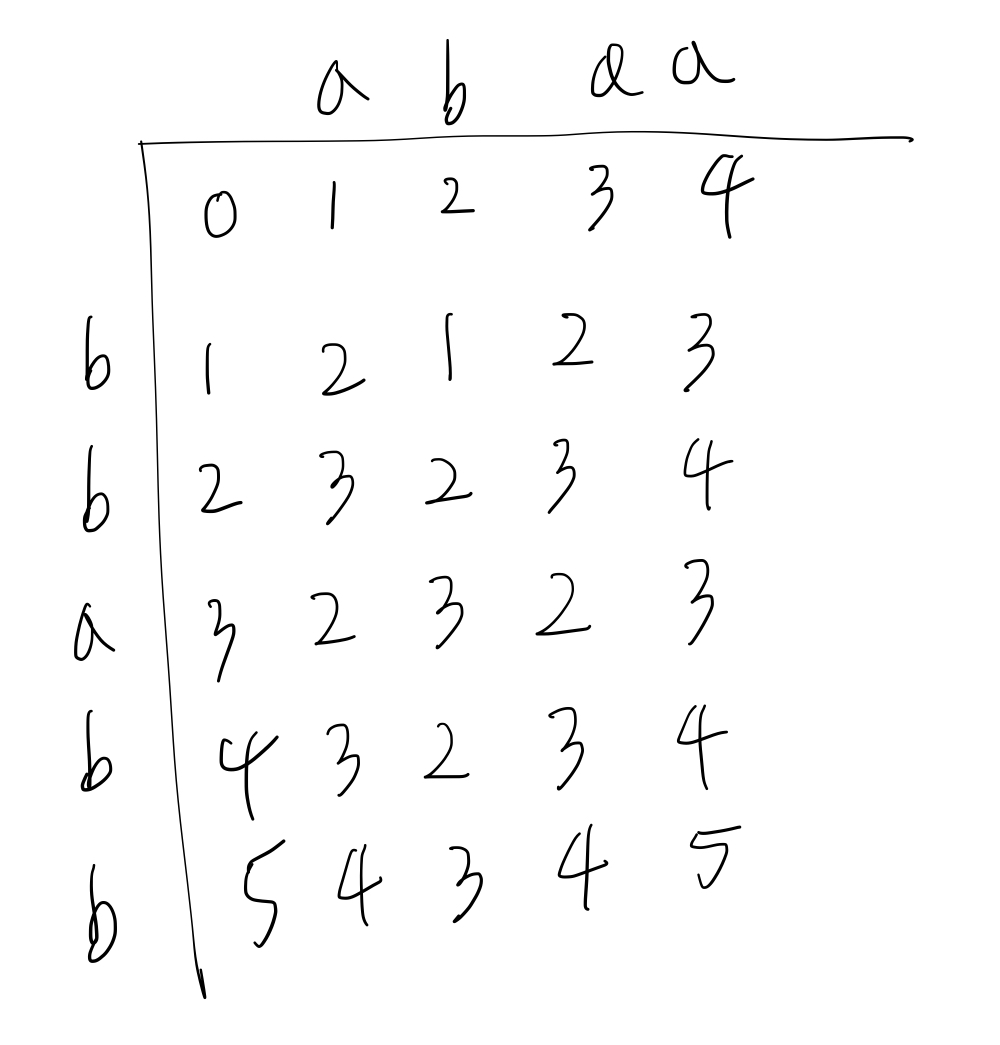 a b a a
0 1 2 3 4
b 1 2 1 2 3
b 2 3 2 3 4
a 3 2 3 2 3
b 4 3 2 3 4
b 5 4 3 4 5